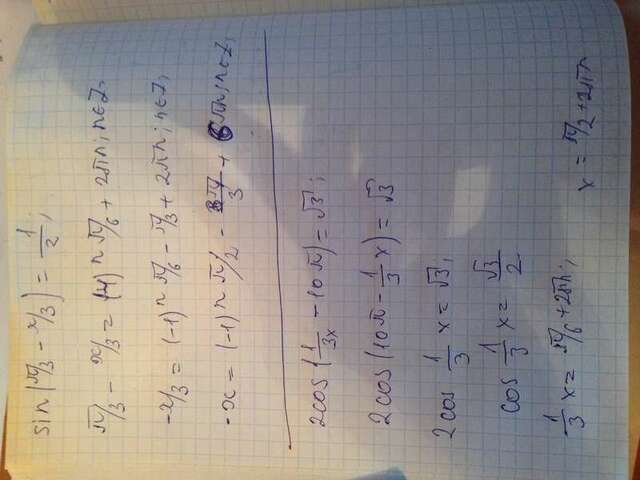 sin(π/3 - x/3) = 1/2;
π/3 - x/3 = (-1)ⁿ π/6 + 2πn; n∈Z;
-x/3 = (-1)ⁿ π/6 - π/3 + 2πn; n∈Z;
-x = (-1)ⁿ π/2 - 3π/3 + 6πn; n∈Z;
2cos(1/3x - 10π) = √3;
2cos(10π - 1/3 x) = √3
2cos 1/3 x = √3;
cos 1/3 x = √3/2
1/3 x = π/6 + 2πn; x = π/2 + 2πn